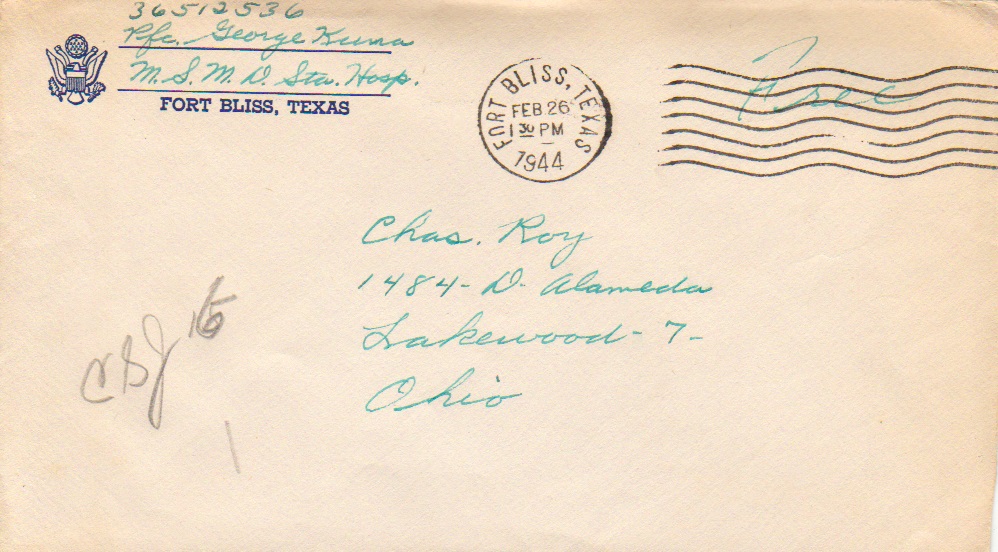 36512536
Pfc. George Kuma
M. S. M. D Sta. Hosp.
FORT BLISS, TEXAS
FORT BLISS, TEXAS
FEB 26
1 30 PM
1944
Free
Chas. Roy
1484-D- Alameda
Lakewood- 7-
Ohio